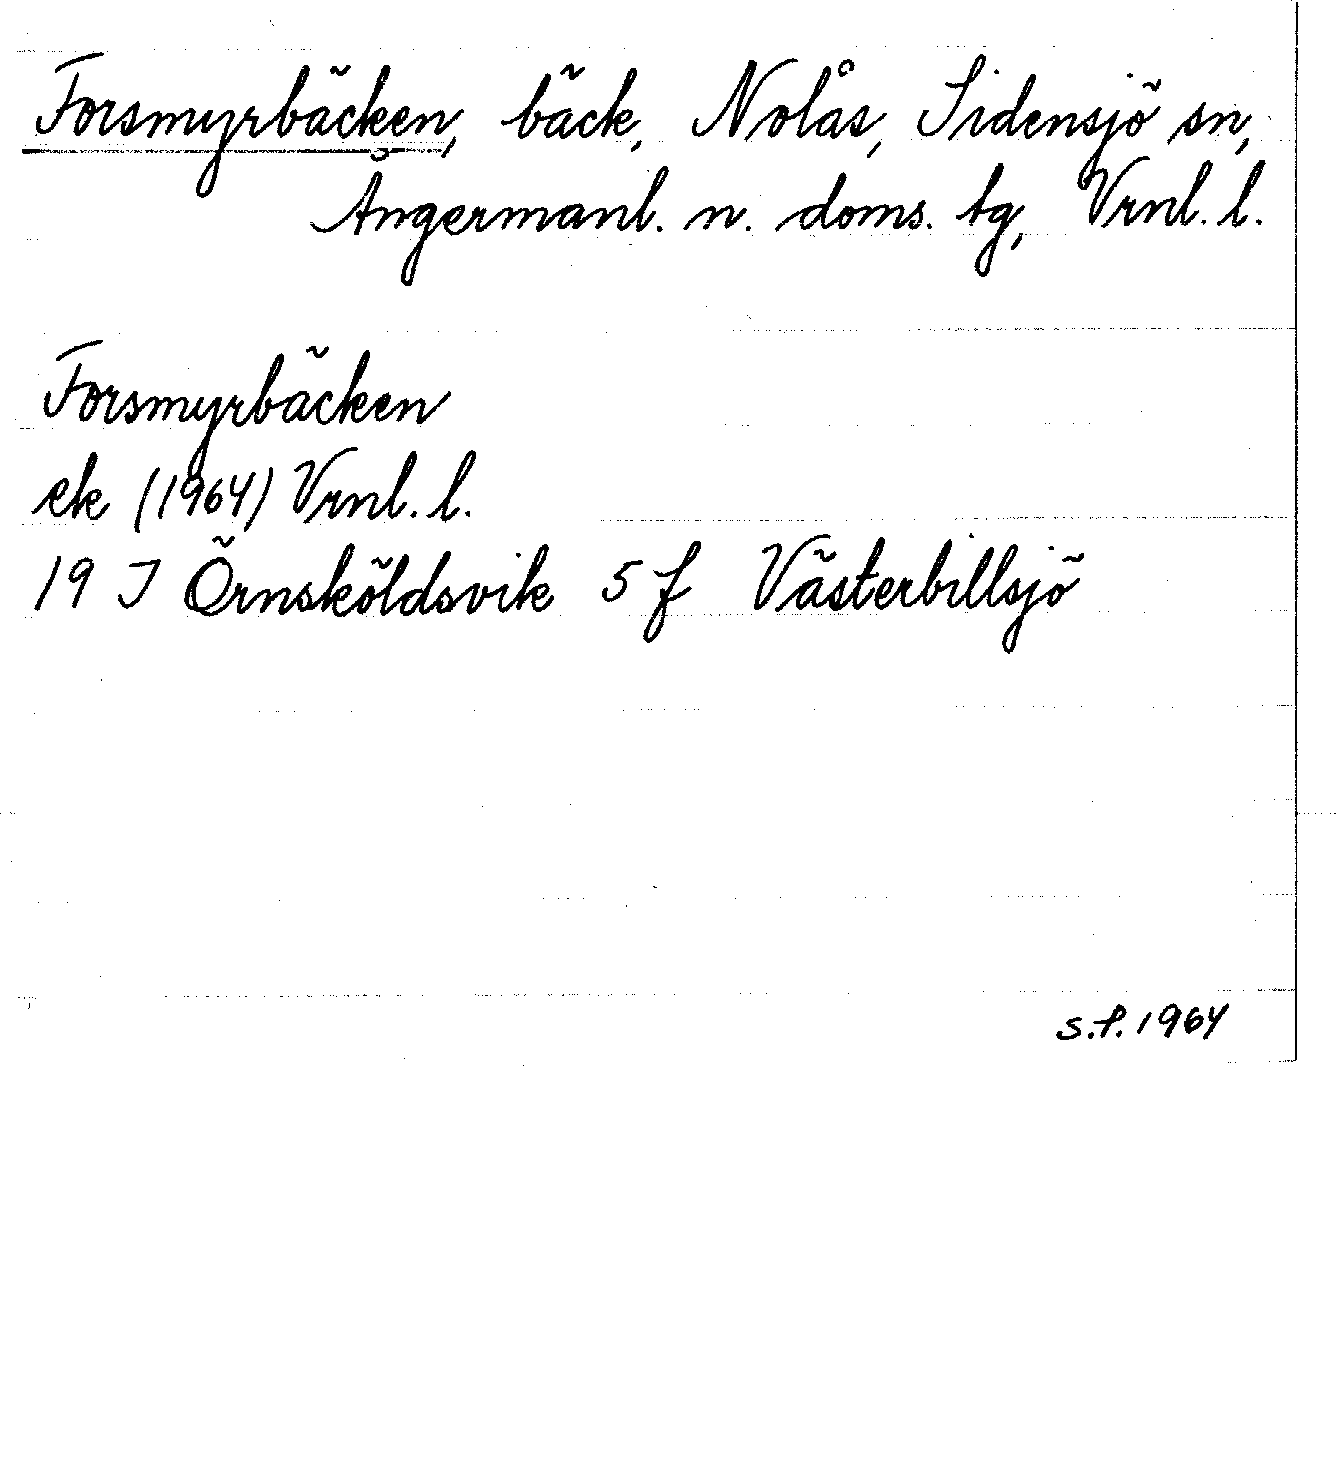 Forsmyrbäcken, bäck, Nolås, Sidensjö sn,
Ångermanl. n. doms. tg, Vrnl. l.
Forsmyrbäcken
ek (1964) Vrnl. l.
19 J Örnsköldsvik 5 f Västerbillsjö
s.f. 1964